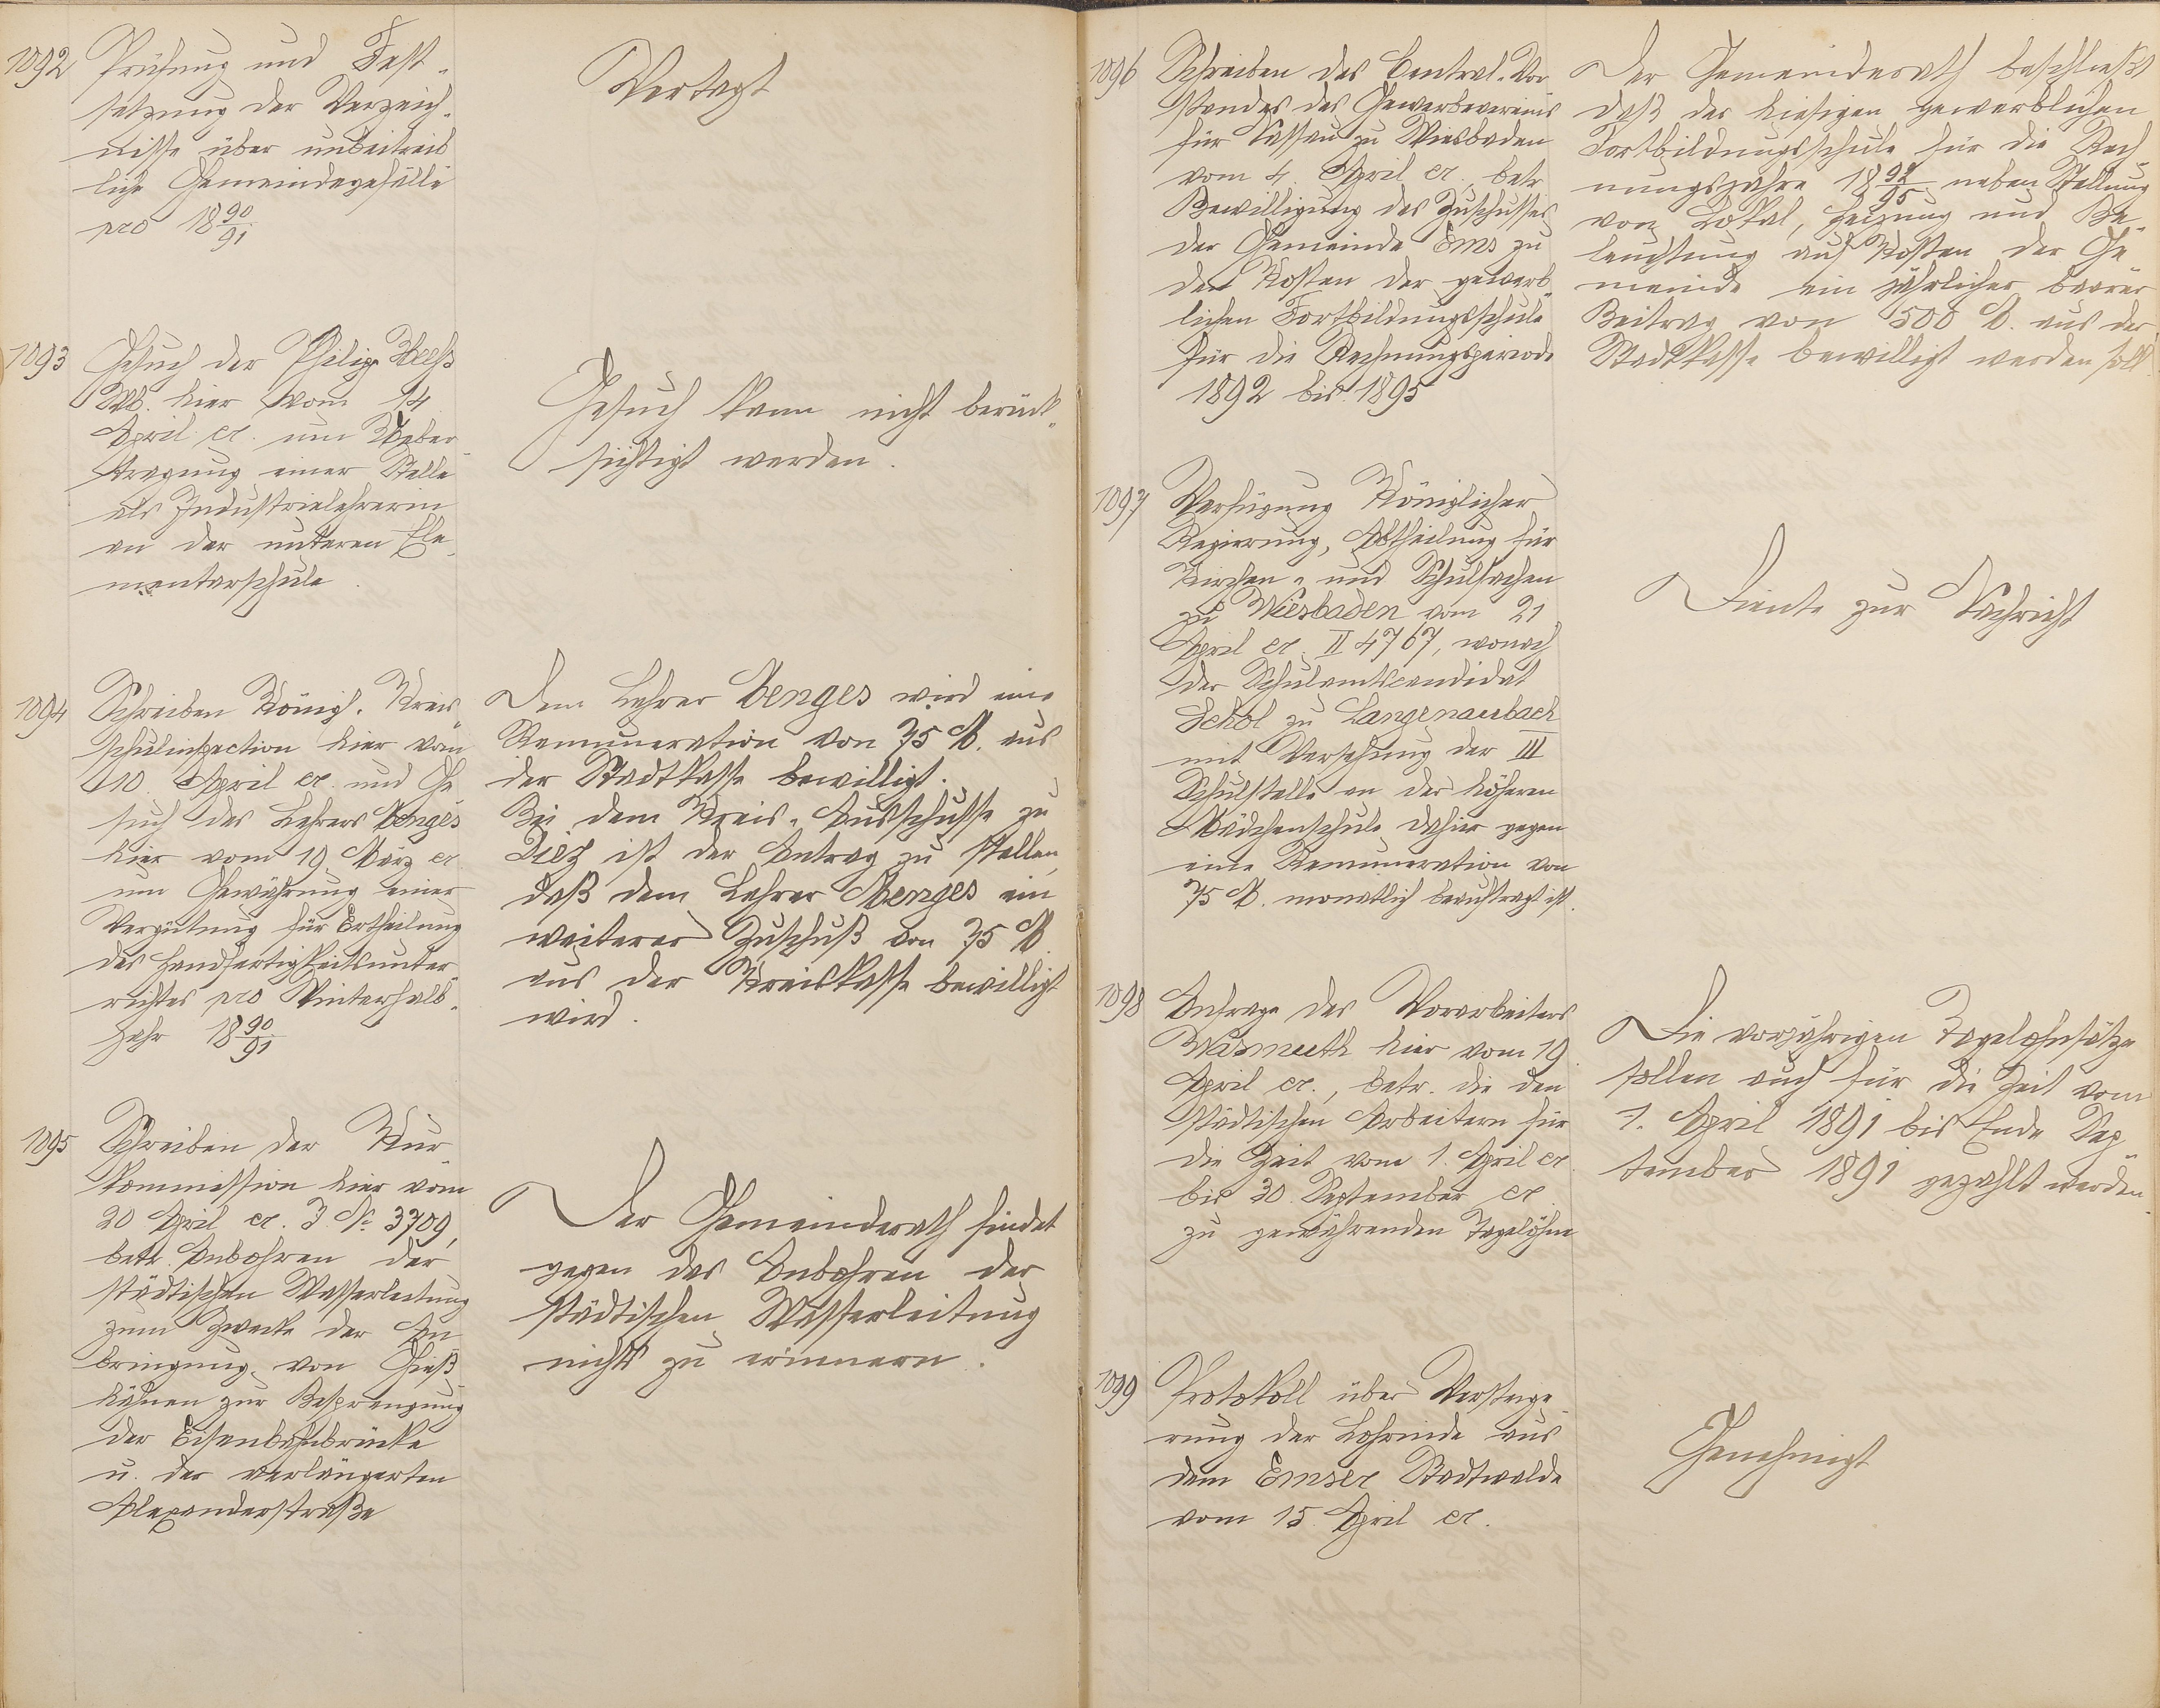 1092 Prüfung und Fest-
setzung der Verzeich-
nisse über unbeitreib
liche Gemeindegefälle
pro 18 90/91
Vertagt
1093 Gesuch der Philipp
Wb. hier vom 14
April cr. um Ueber-
tragung einer Stelle
als Industrielehrerin
an der unteren Ele-
mentarschule.
Gesuch kann nicht berück-
sichtigt werden.
1094 Schreiben Königl. Kreis-
schulinspection hier vom
10. April cr. und Ge-
such des Lehrers Menges
hier vom 19. März cr
um Gewährung einer
Vergütung für Ertheilung
des Handfertigkeitsunter-
richtes pro Winterhalb-
jahr 18 90/91
Dem Lehrer Menges wird eine
Remuneration von 75 M. aus
der Stadtkasse bewilligt.
Bei dem Kreis-Ausschusse zu
Diez ist der Antrag zu stellen,
daß dem Lehrer Menges ein
weiterer Zuschuß von 75 M.
aus der Kreiskasse bewilligt
wird.
1095 Schreiben der Kur-
kommission hier vom
20 April cr. J. No 3709,
betr. Anbohren der
städtischen Wasserleitung
zum Zwecke der An-
bringung von Gieß-
hähnen zur Besprengung
der Eisenbahnbrücke
u. der verlängerten
Alexanderstraße
Der Gemeinderath findet
gegen das Anbohren der
städtischen Wasserleitung
nichts zu erinnern.
1096 Schreiben des Central-Vor
standes des Gewerbevereins
für Nassau zu Wiesbaden
vom 4. April cr., betr.
Bewilligung des Zuschusses
der Gemeinde Ems zu
den Kosten der gewerb-
lichen Fortbildungsschule
für die Rechnungsperiode
1892 bis 1895
Der Gemeinderath beschließt
daß der hiesigen gewerblichen
Fortbildungsschule für die Rech-
nungsjahre 18 92/95 neben Stellung
von Lokal, Heizung und Be-
leuchtung auf Kosten der Ge-
meinde ein jährlicher baarer
Beitrag von 500 M. aus der
Stadtkasse bewilligt werden soll.
1097 Verfügung Königlicher
Regierung, Abtheilung für
Kirchen- und Schulsachen
zu Wiesbaden vom 21
April cr. II 4767, wonach
der Schulamtscandidat
zu Langenaubach
mit Versehung der III
Schulstelle an der höheren
Mädchenschule dahier gegen
eine Remuneration von
75 M. monatlich beauftragt ist.
Diente zur Nachricht
1098 Anfrage des Vorarbeiters
Wismuth hier vom 19.
April cr., betr. die den
städtischen Arbeitern für
die Zeit vom 1. April cr.
bis 30. September cr.
zu gewährenden Tagelöhne
Die vorjährigen Tagelohnsätze
sollen auch für die Zeit vom
1. April 1891 bis Ende Sep-
tember 1891 gezahlt werden.
1099 Protokoll über Versteige-
rung der Lohrinde aus
dem Emser Stadtwalde
vom 15. April cr.
Genehmigt